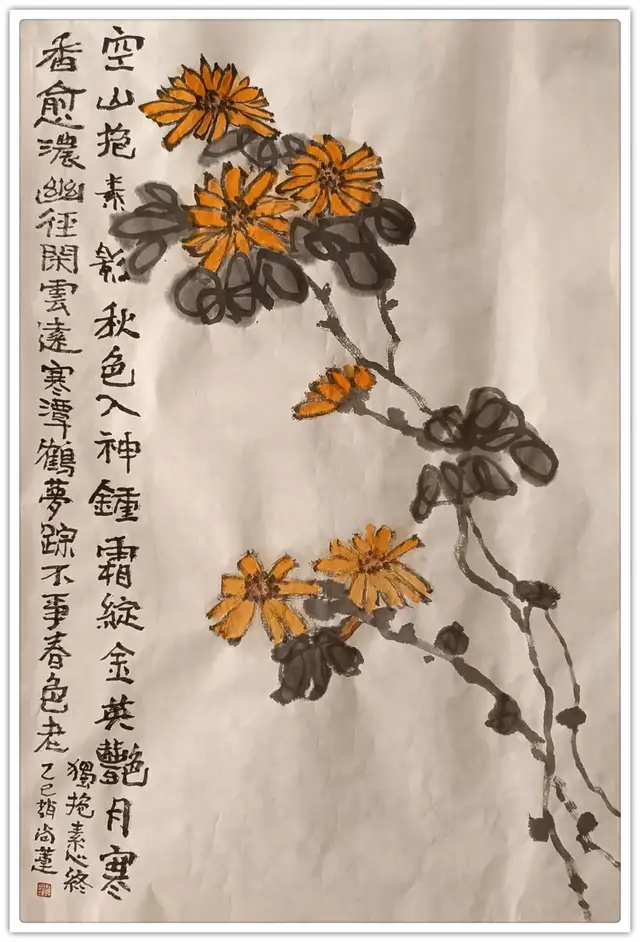 空山抱素影秋色入神鍾霜綻金英艷月寒
香愈濃幽徑閑雲遠寒潭鶴夢踪不爭春色老
獨抱素心終
乙巳趙尚蓮